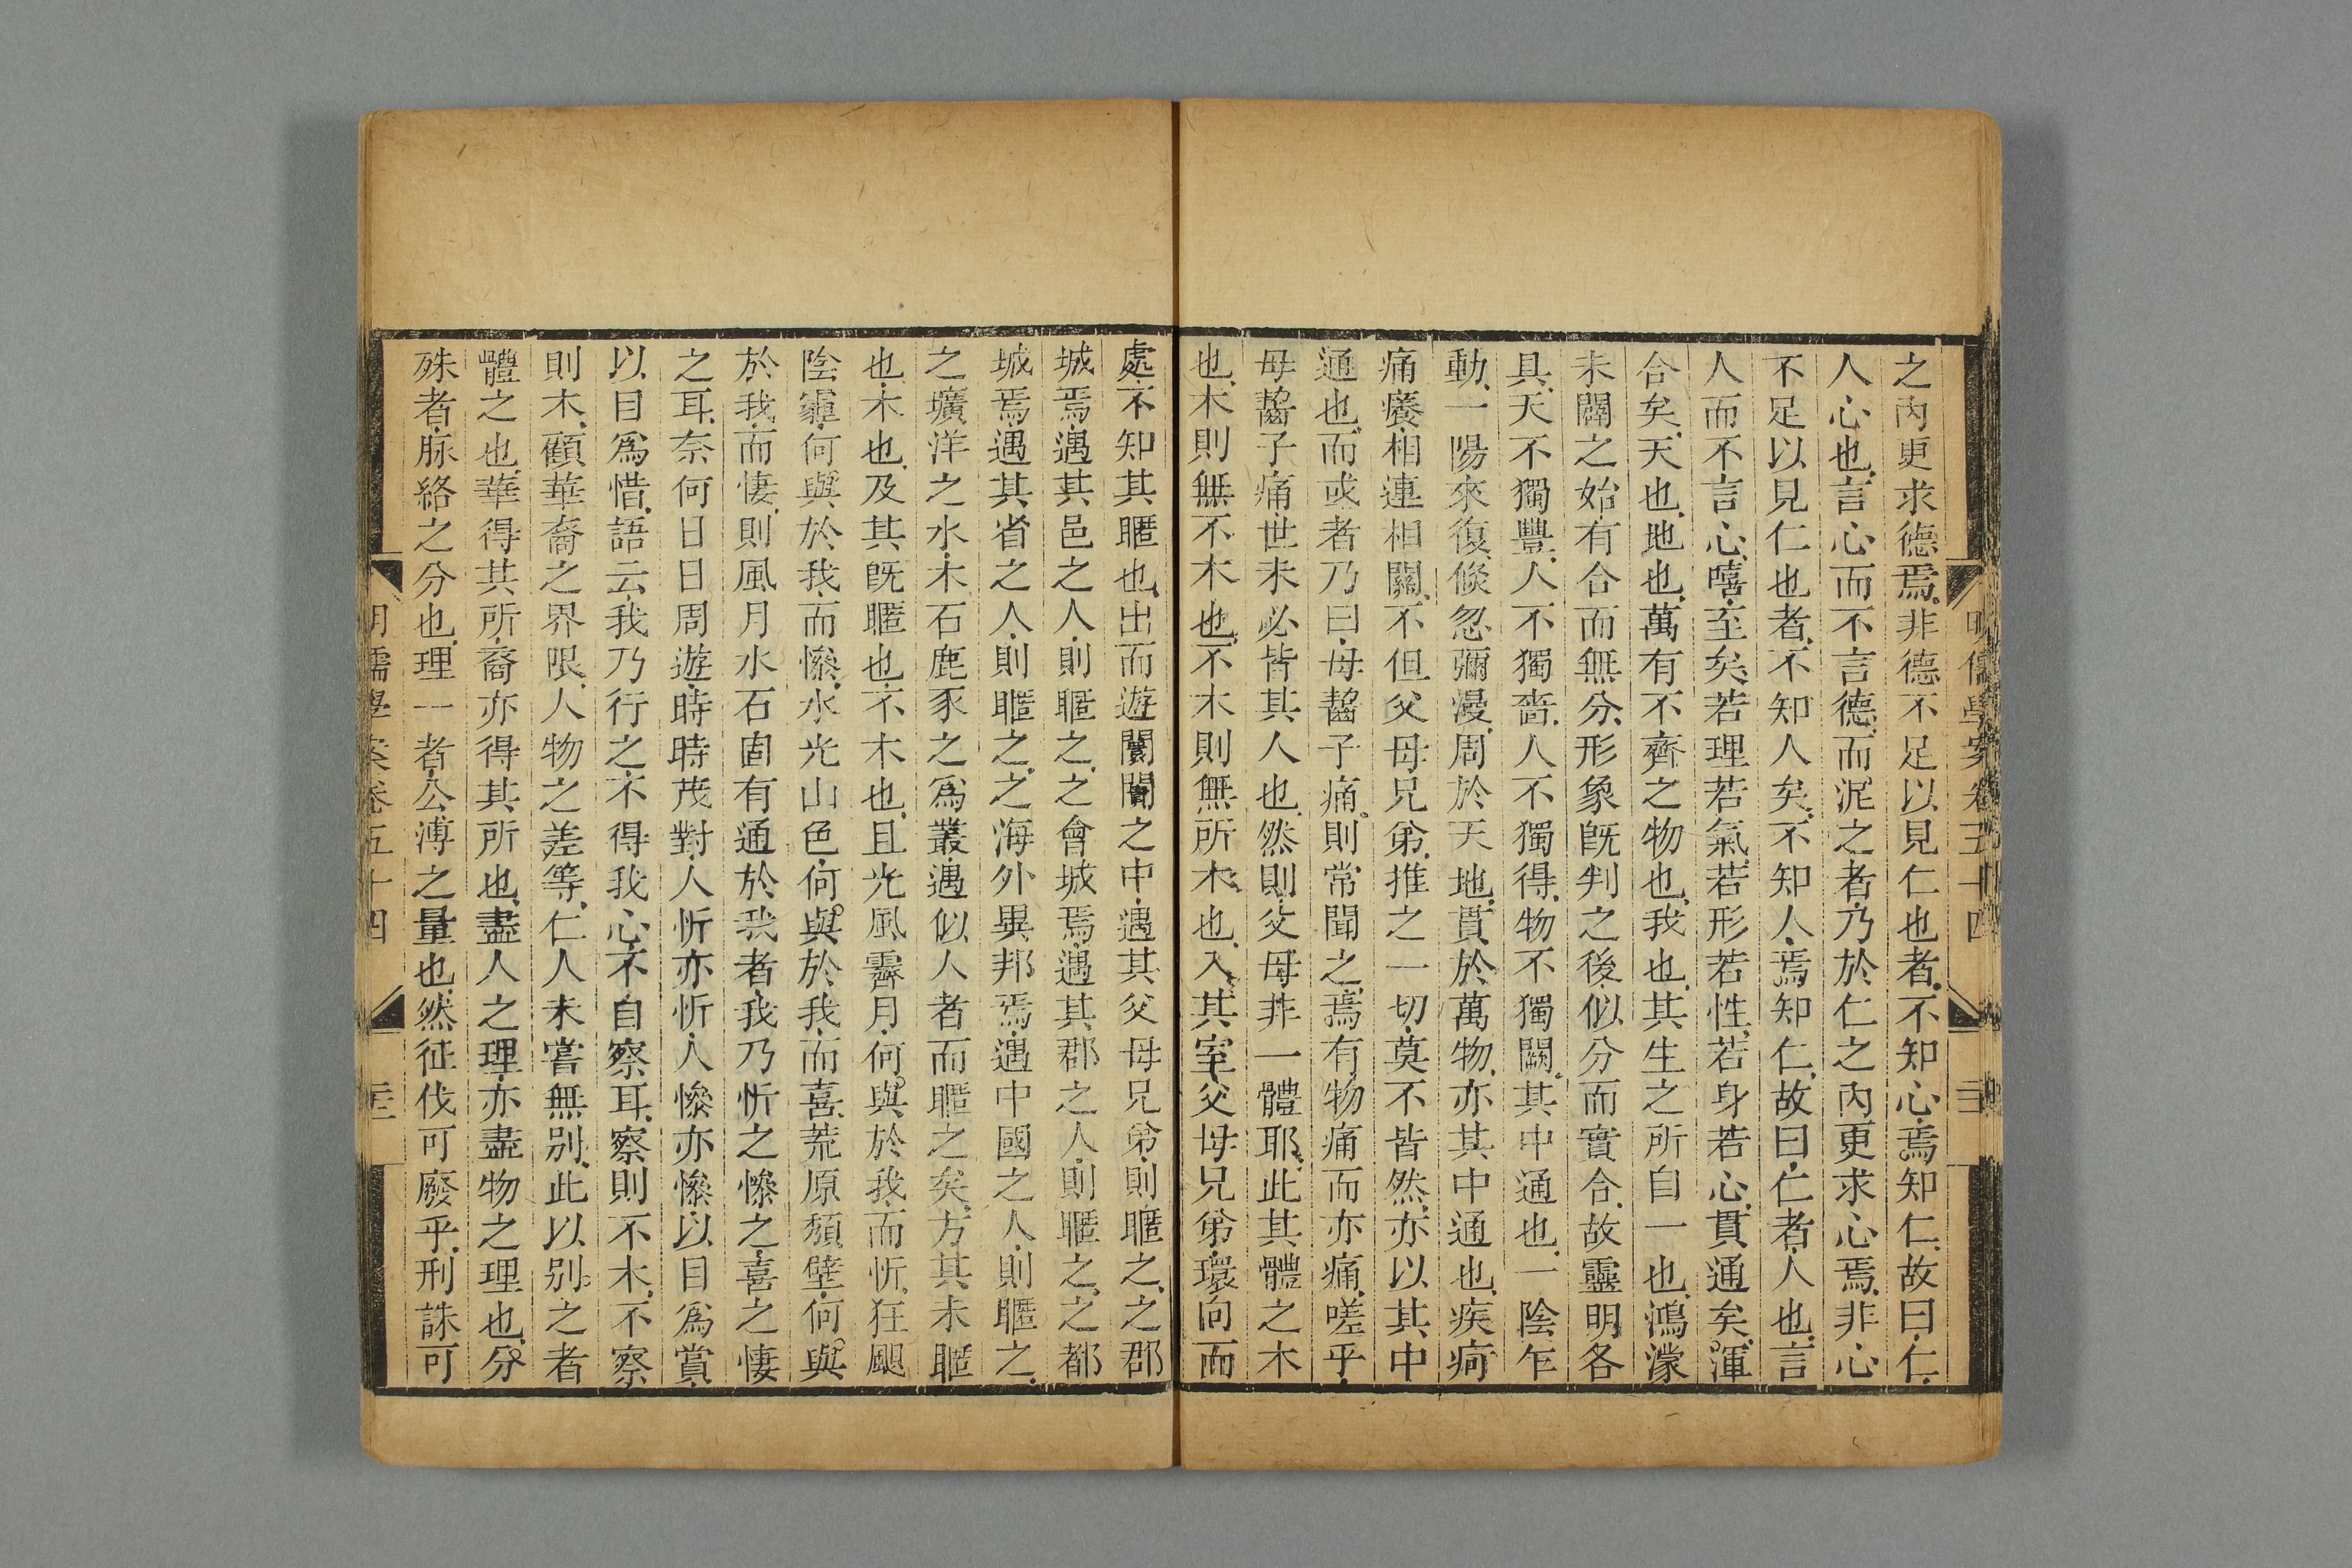 明儒學案卷五十四
之內更求德焉非德不足以見仁也者不知心焉知仁故曰仁
人心也言心而不言德而泥之者乃於仁之內更求心焉非心
不足以見仁也者不知人矣不知人焉知仁故曰仁者人也言
人而不言心嘻至矣若理若氣若形若性若身若心貫通矣渾
合矣天也地也萬有不齊之物也我也其生之所自一也鴻濛
未闢之始有合而無分形象旣判之後似分而實合故靈明各
具天不獨豐人不獨嗇人不獨得物不獨闕其中通也一陰乍
動一陽來復倐忽彌漫周於天地貫於萬物亦其中通也疾痾
痛癢相連相關不但父母兄弟推之一切莫不皆然亦以其中
通也而或者乃曰母齧子痛則常聞之焉有物痛而亦痛嗟乎
母齧子痛世未必皆其人也然則父母非一體耶此其體之木
也木則無不木也不木則無所木也入其室父母兄弟環向而
處不知其暱也出而遊闤闠之中遇其父母兄弟則暱之之郡
城焉遇其邑之人則暱之之會城焉遇其郡之人則暱之之都
城焉遇其省之人則暱之之海外異邦焉遇中國之人則暱之
之壙洋之水木石鹿豕之爲叢遇似人者而暱之矣方其未暱
也木也及其旣暱也不木也且光風霽月何與於我而忻狂颶
陰霾何與於我而慘水光山色何與於我而喜荒原頽壁何與
於我而悽則風月水石固有通於我者我乃忻之慘之喜之悽
之耳奈何日日周遊時時茂對人忻亦忻人慘亦慘以目爲賞
以目爲惜語云我乃行之不得我心不自察耳察則不木不察
則木顧華裔之界限人物之差等仁人未嘗無別此以別之者
體之也華得其所裔亦得其所也盡人之理亦盡物之理也分
殊者脉絡之分也理一者公溥之量也然征伐可廢乎刑誅可
明儒學案卷五十四